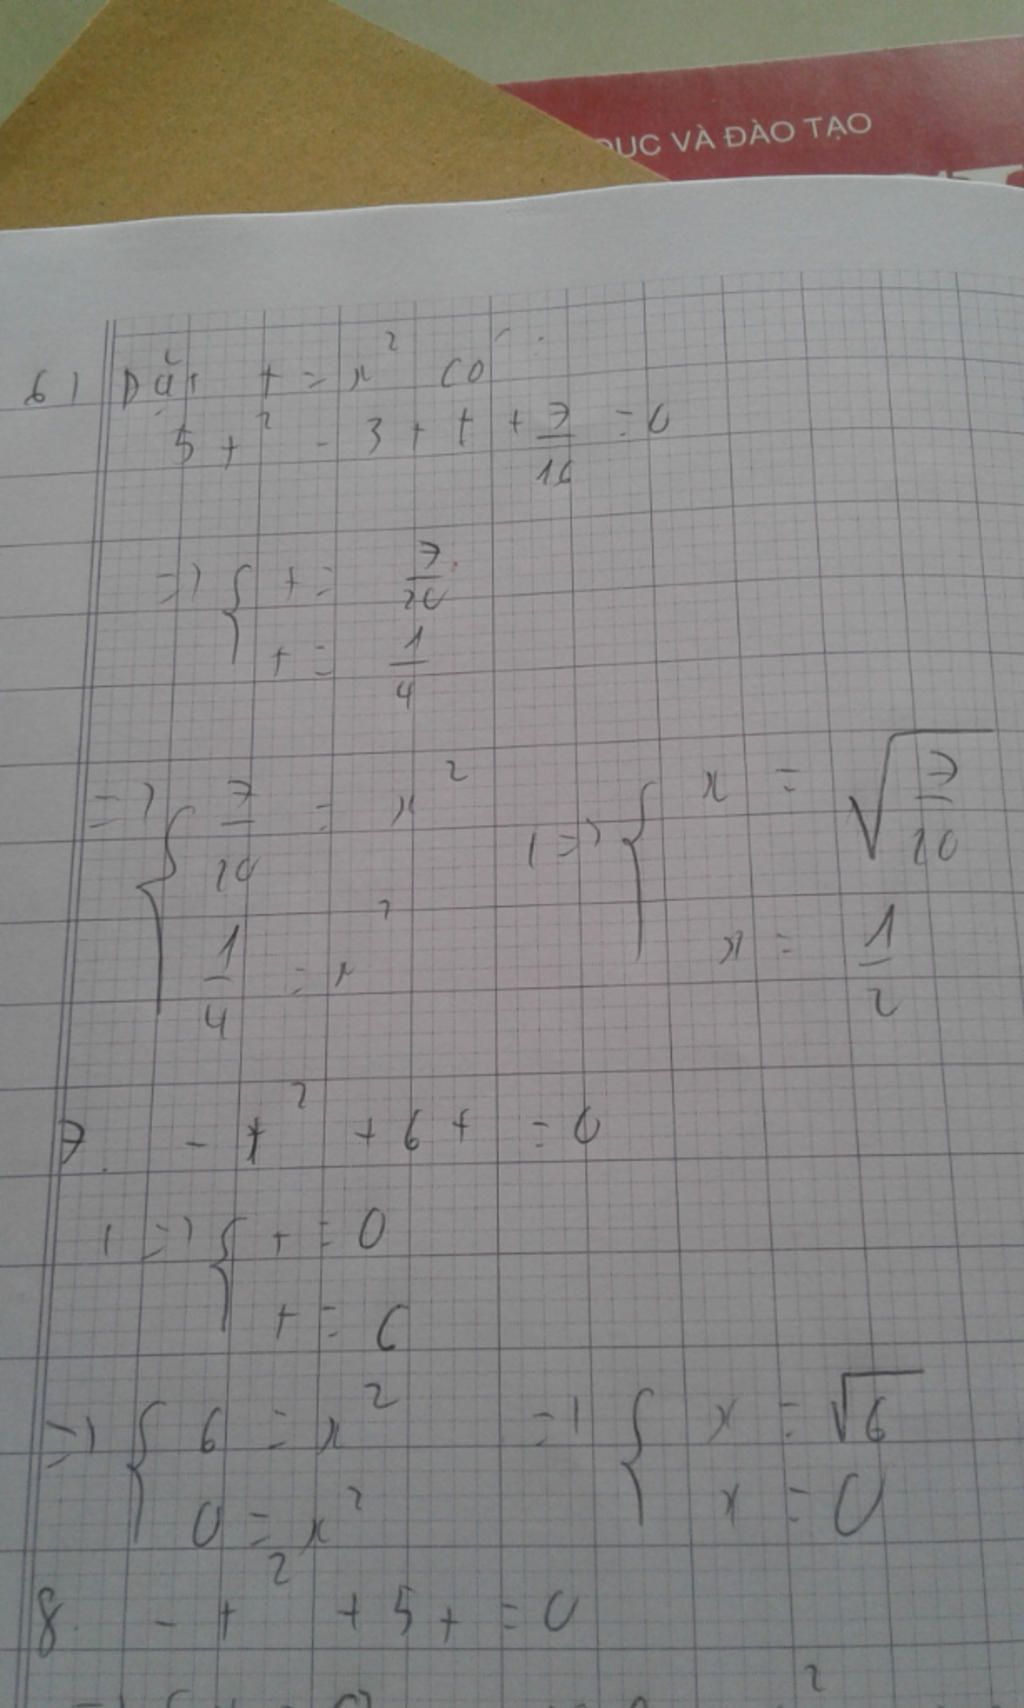 DỤC VÀ ĐÀO TẠO
6) Đặt t = x² có
5t² - 3t + t + 7/16 = 0
=> { t = 7/20
t = 1/4
=> { 7/20 = x² => { x = √7/20
1/4 = x² x = 1/2
7. - t² + 6t = 0
=> { t = 0
t = 6
=> { 6 = x² => { x = √6
0 = x² x = 0
8. - t² + 5t = 0